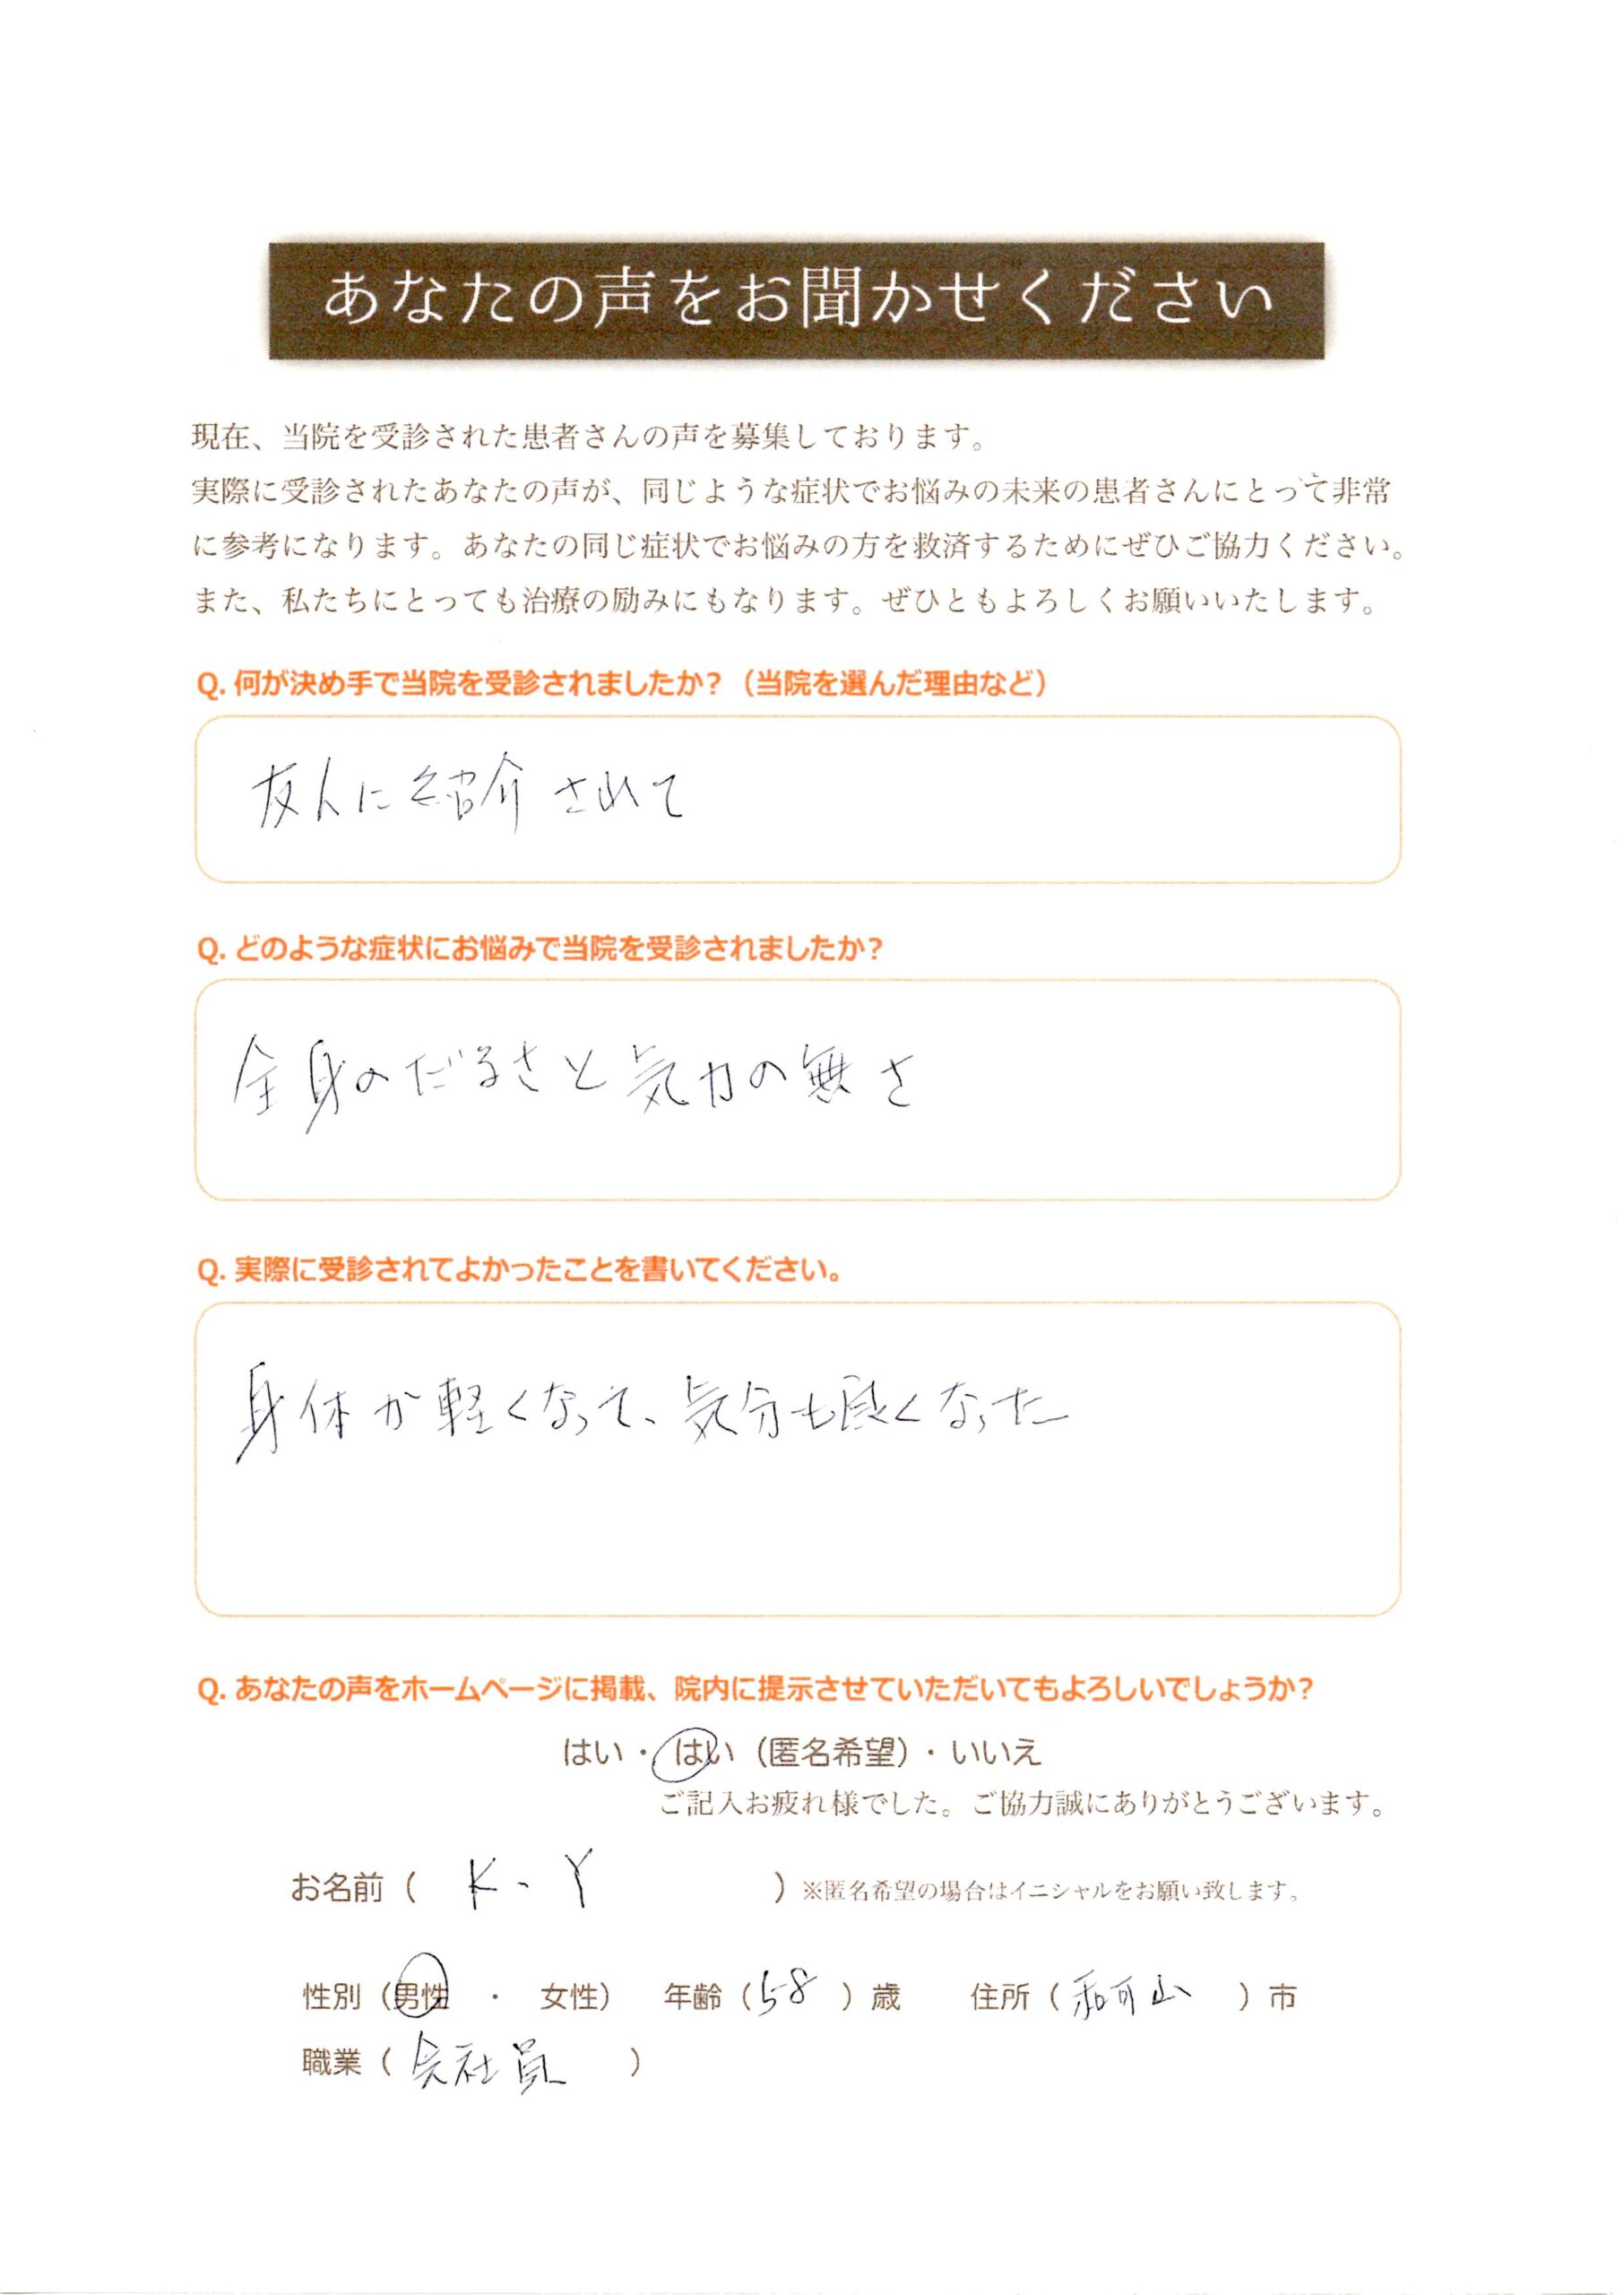 あなたの声をお聞かせください
現在、当院を受診された患者さんの声を募集しております。
実際に受診されたあなたの声が、同じような症状でお悩みの未来の患者さんにとって非常
に参考になります。あなたの同じ症状でお悩みの方を救済するためにぜひご協力ください。
また、私たちにとっても治療の励みにもなります。ぜひともよろしくお願いいたします。
Q. 何が決め手で当院を受診されましたか？（当院を選んだ理由など）
友人に紹介されて
Q. どのような症状にお悩みで当院を受診されましたか？
全身のだるさと気力の無さ
Q. 実際に受診されてよかったことを書いてください。
身体が軽くなって、気分も良くなった
Q. あなたの声をホームページに掲載、院内に提示させていただいてもよろしいでしょうか？
はい・はい（匿名希望）・いいえ
ご記入お疲れ様でした。ご協力誠にありがとうございます。
お名前（ K、Y ）※匿名希望の場合はイニシャルをお願い致します。
性別（男性 ・ 女性） 年齢（58）歳 住所（ ）市
職業（会社員 ）